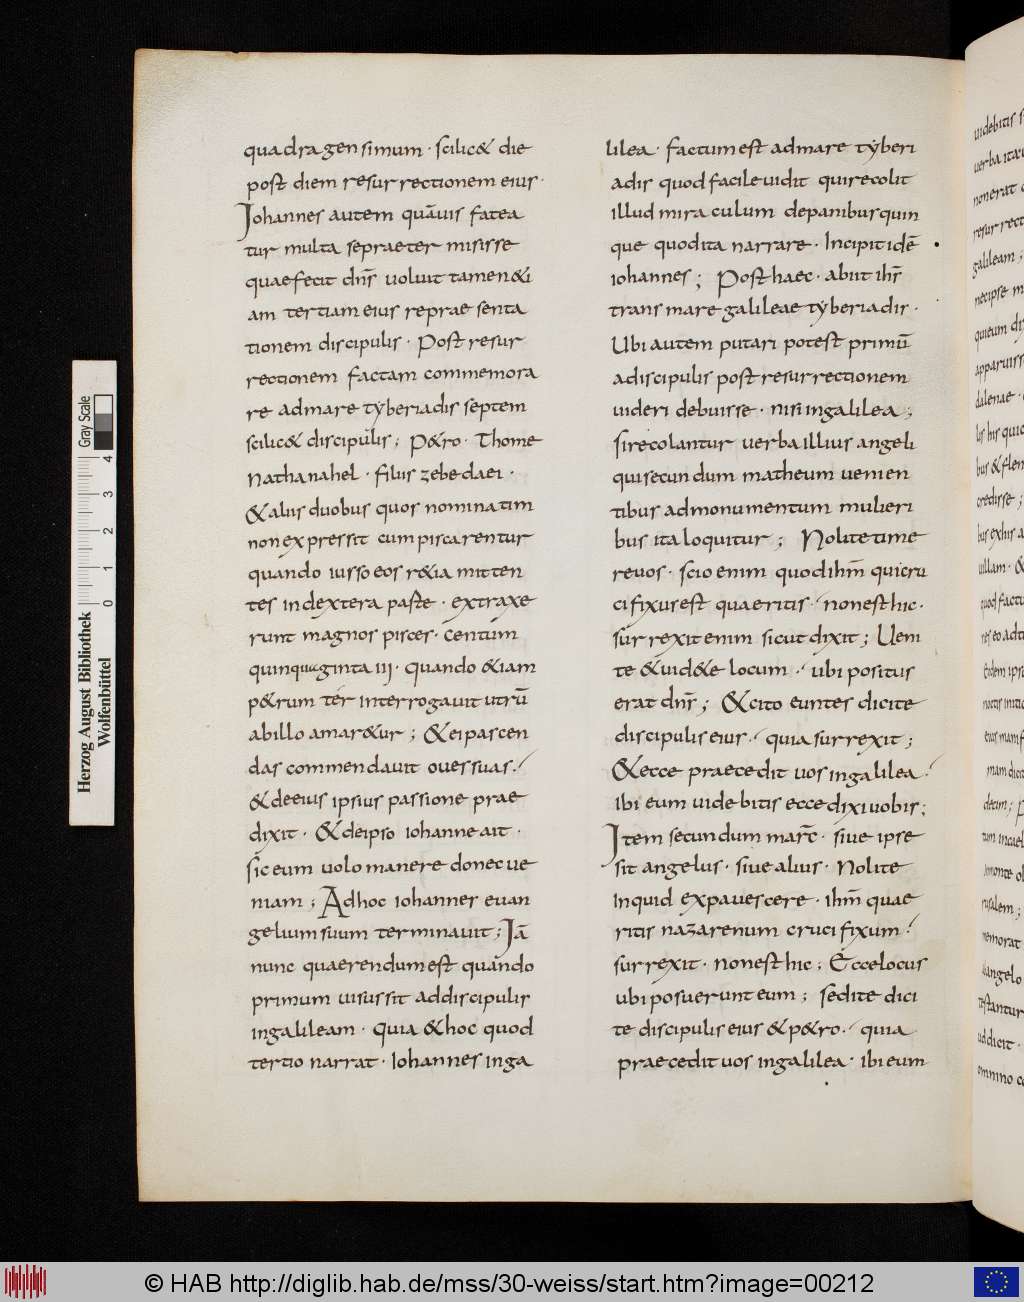 quadragensimum · scilic& die
post diem resurrectionem eius ·
Iohannes autem quāuis fatea
tur multa sepraeter misisse
quaefecit dn̄s uoluit tamen&i
am tertiam eius repraesenta
tionem discipulis · Post resur
rectionem factam commemora
re admare tyberiadis septem
scilic& discipulis ; P&ro · Thome
Nathanahel · filiis zebedaei ·
&aliis duobus quos nominatim
nonexpressit cumpiscarentur
quando iusso eos r&ia mitten
tes indextera parte · extraxe
runt magnos pisces · centum
quinquaginta III · quando &iam
p&rum ter interrogauit utrū
abillo amar&ur ; &eipascen
das commendauit ouessuas ·
&deeius ipsius passione prae
dixit · &deipso iohanne ait ·
sic eum uolo manere donec ue
niam ; Adhoc iohannes euan
gelium suum terminauit ; Iā
nunc quaerendumest quando
primum uisussit addiscipulis
ingalileam · quia &hoc quod
tertio narrat · Iohannes inga
lilea · factumest admare tyberi
adis quod facile uidit quirecolit
illud miraculum depanibusquin
que quodita narrare · Incipit idē
iohannes ; Posthaec · abiit ih̄s
trans mare galileae tyberiadis ·
Ubi autem putari potest primū
adiscipulis postresurrectionem
uideri debuisse · nisi ingalilea ;
sirecolantur uerba illius angeli
quisecundum matheum uenien
tibus admonumentum mulieri
bus ita loquitur ; Nolite time
reuos · scio enim quod ihm̄ quicru
cifixusest quaeritis · nonesthic ·
surrexit enim sicut dixit ; Ueni
te &uid&e locum · ubi positus
erat dn̄s ; &cito euntes dicite
discipulis eius · quia surrexit ;
&ecce praecedit uos ingalilea ·
ibi eum uidebitis ecce dixi uobis ;
Item secundum marc̄ · siue ipse
sit angelus · siue alius · Nolite
inquid expauescere · ihm̄ quae
ritis nazarenum crucifixum ·
surrexit · nonesthic ; Ecce locus
ubi posuerunt eum ; sedite dici
te discipulis eius &p&ro · quia
praecedit uos ingalilea · ibi eum
Gray Scale
4
3
2
1
0
Herzog August Bibliothek
Wolfenbüttel
© HAB http://diglib.hab.de/mss/30-weiss/start.htm?image=00212